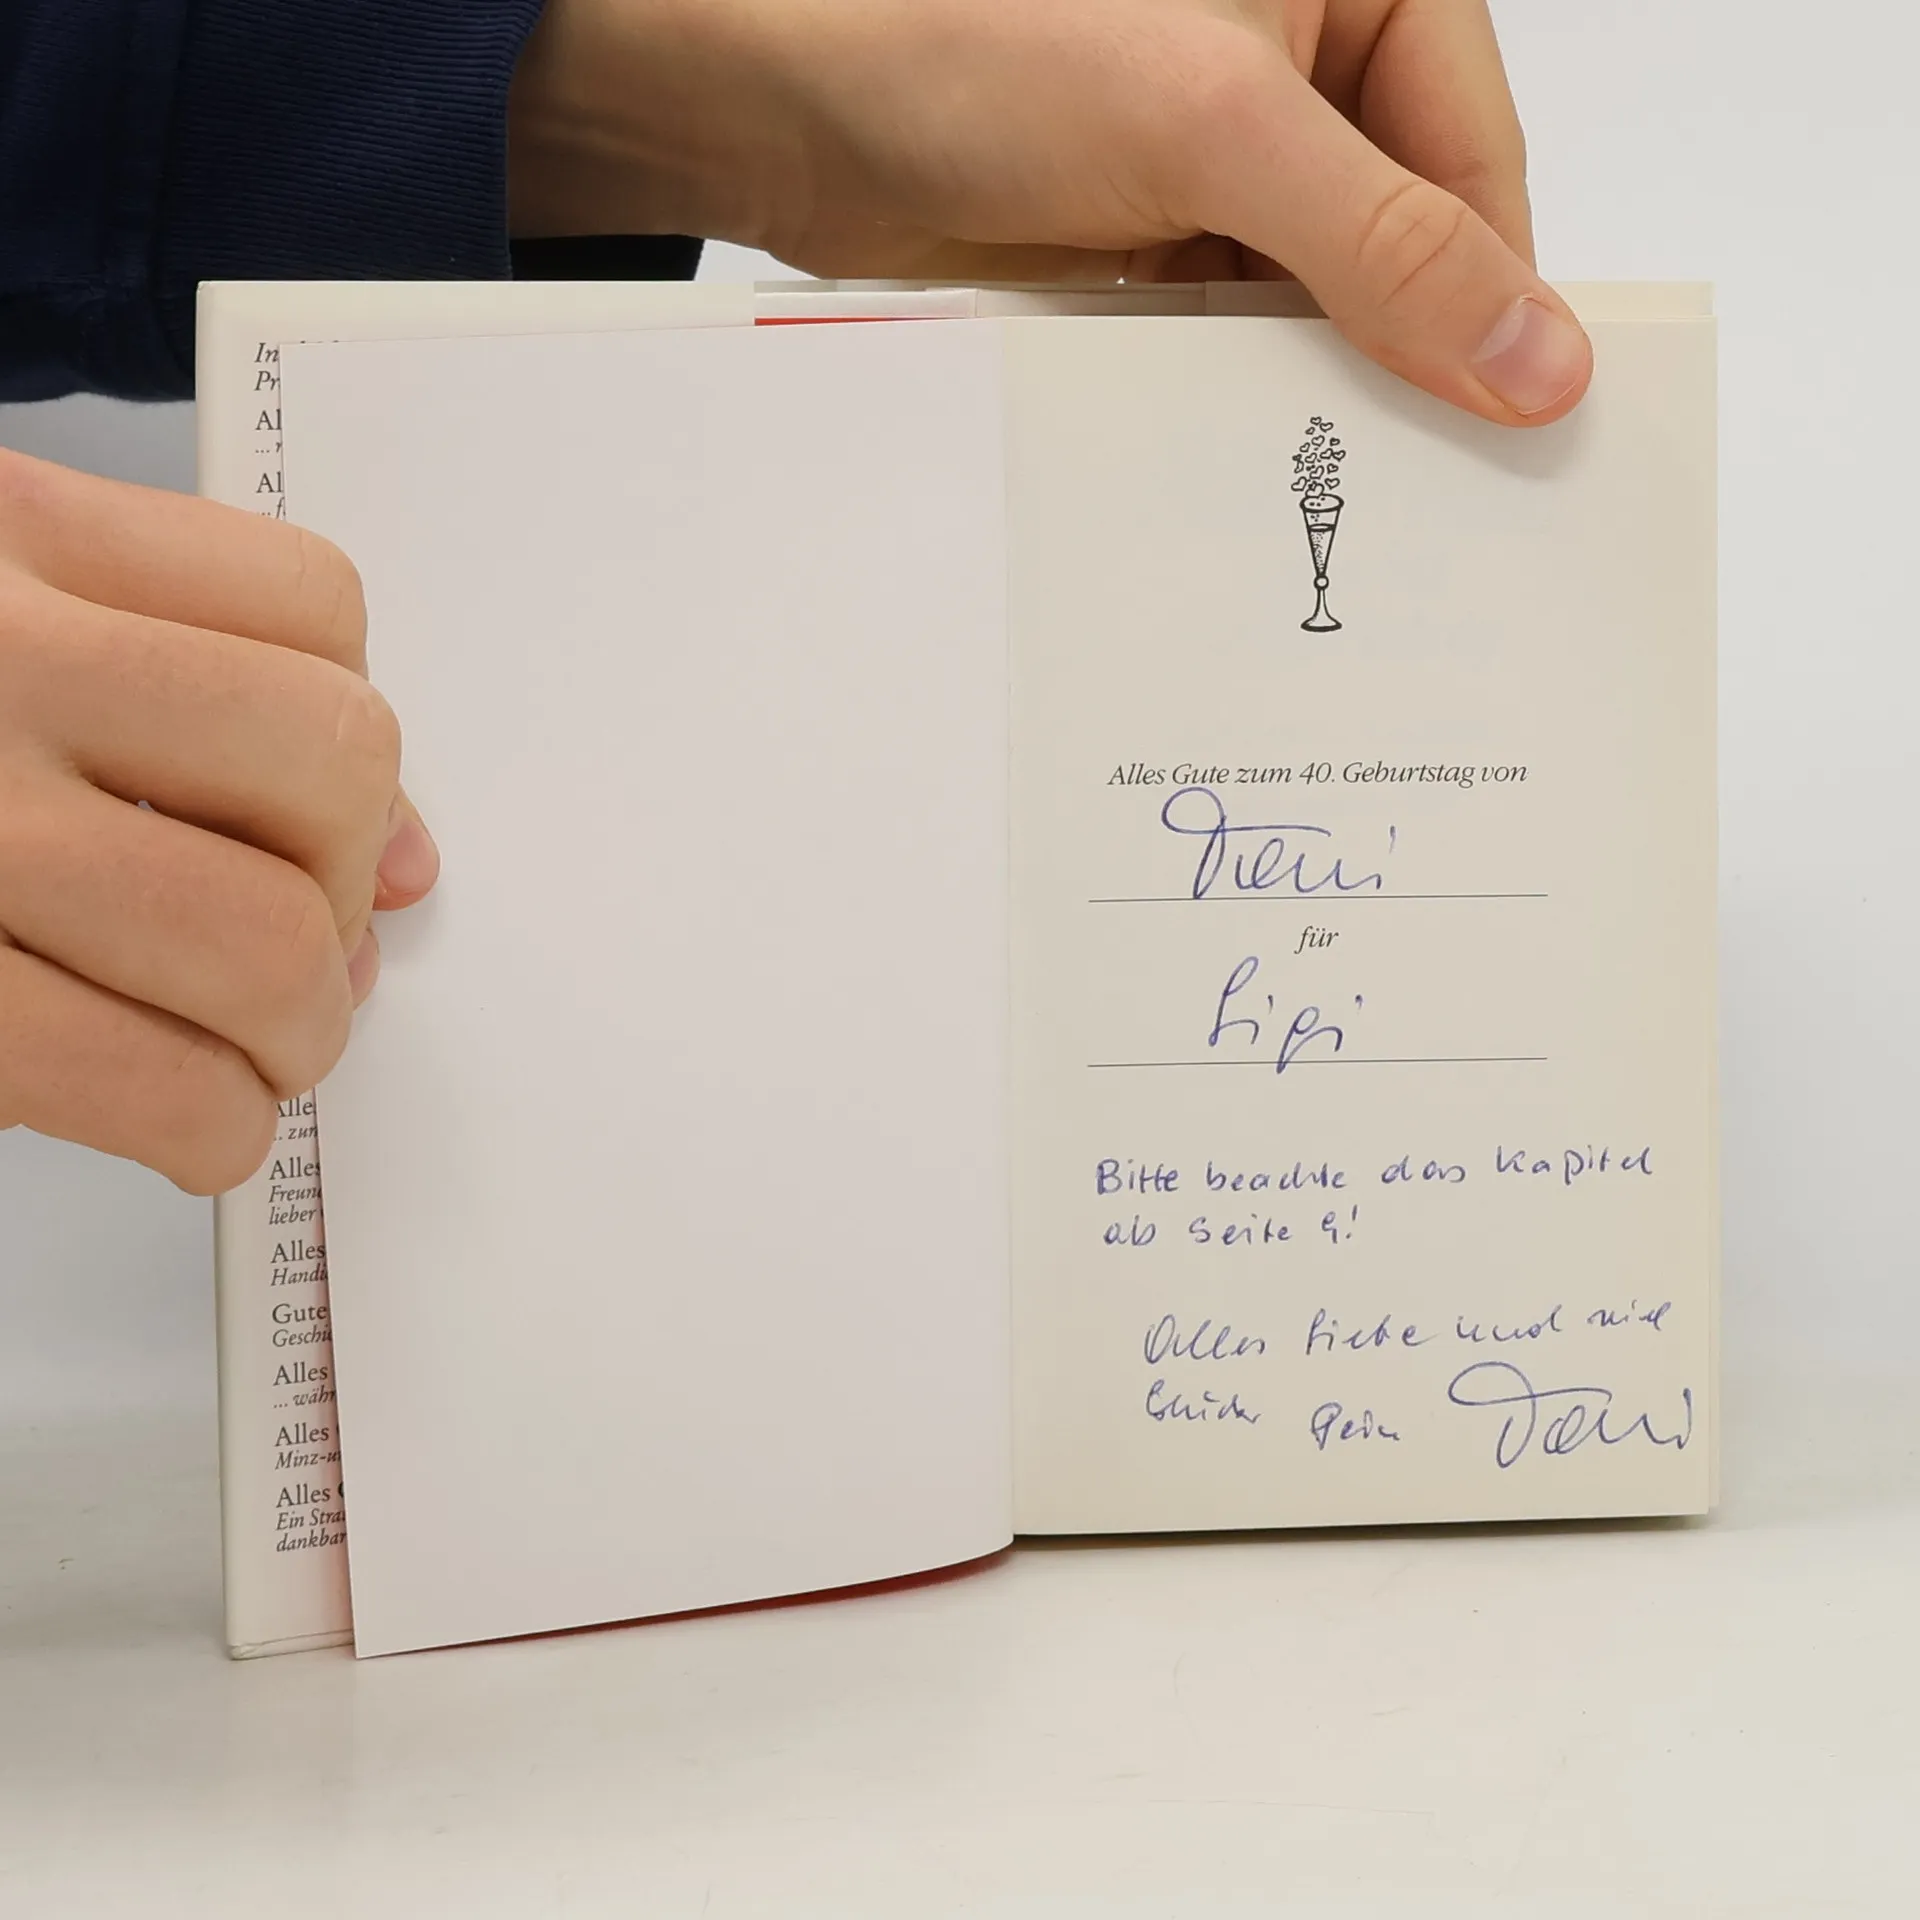 In
Pr
Al
... r
Al
... f
Alle
.. zun
Alles
Freund
lieber
Alles
Handi
Gute
Geschi
Alles
... währ
Alles
Minz-u
Alles
Ein Stra
dankbar
Alles Gute zum 40. Geburtstag von
für
Sigi
Bitte beachte das Kapitel
ab Seite 9!
Alles Liebe und viel
Dein